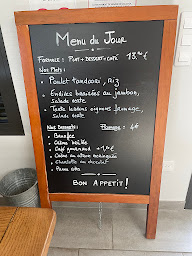 Menu du Jour
Formule : Plat + Dessert + Café 13,90€
Nos Plats :
• Poulet Tandoori, Riz
• Endives braisées au jambon,
salade verte
• Tarte lardons oignons fromage,
salade verte
Nos Desserts :
Fromage : 4€
• Banoffee
• Crème brûlée
• Café gourmand
• Charlotte au chocolat
• Panna cotta
Bon Appetit !